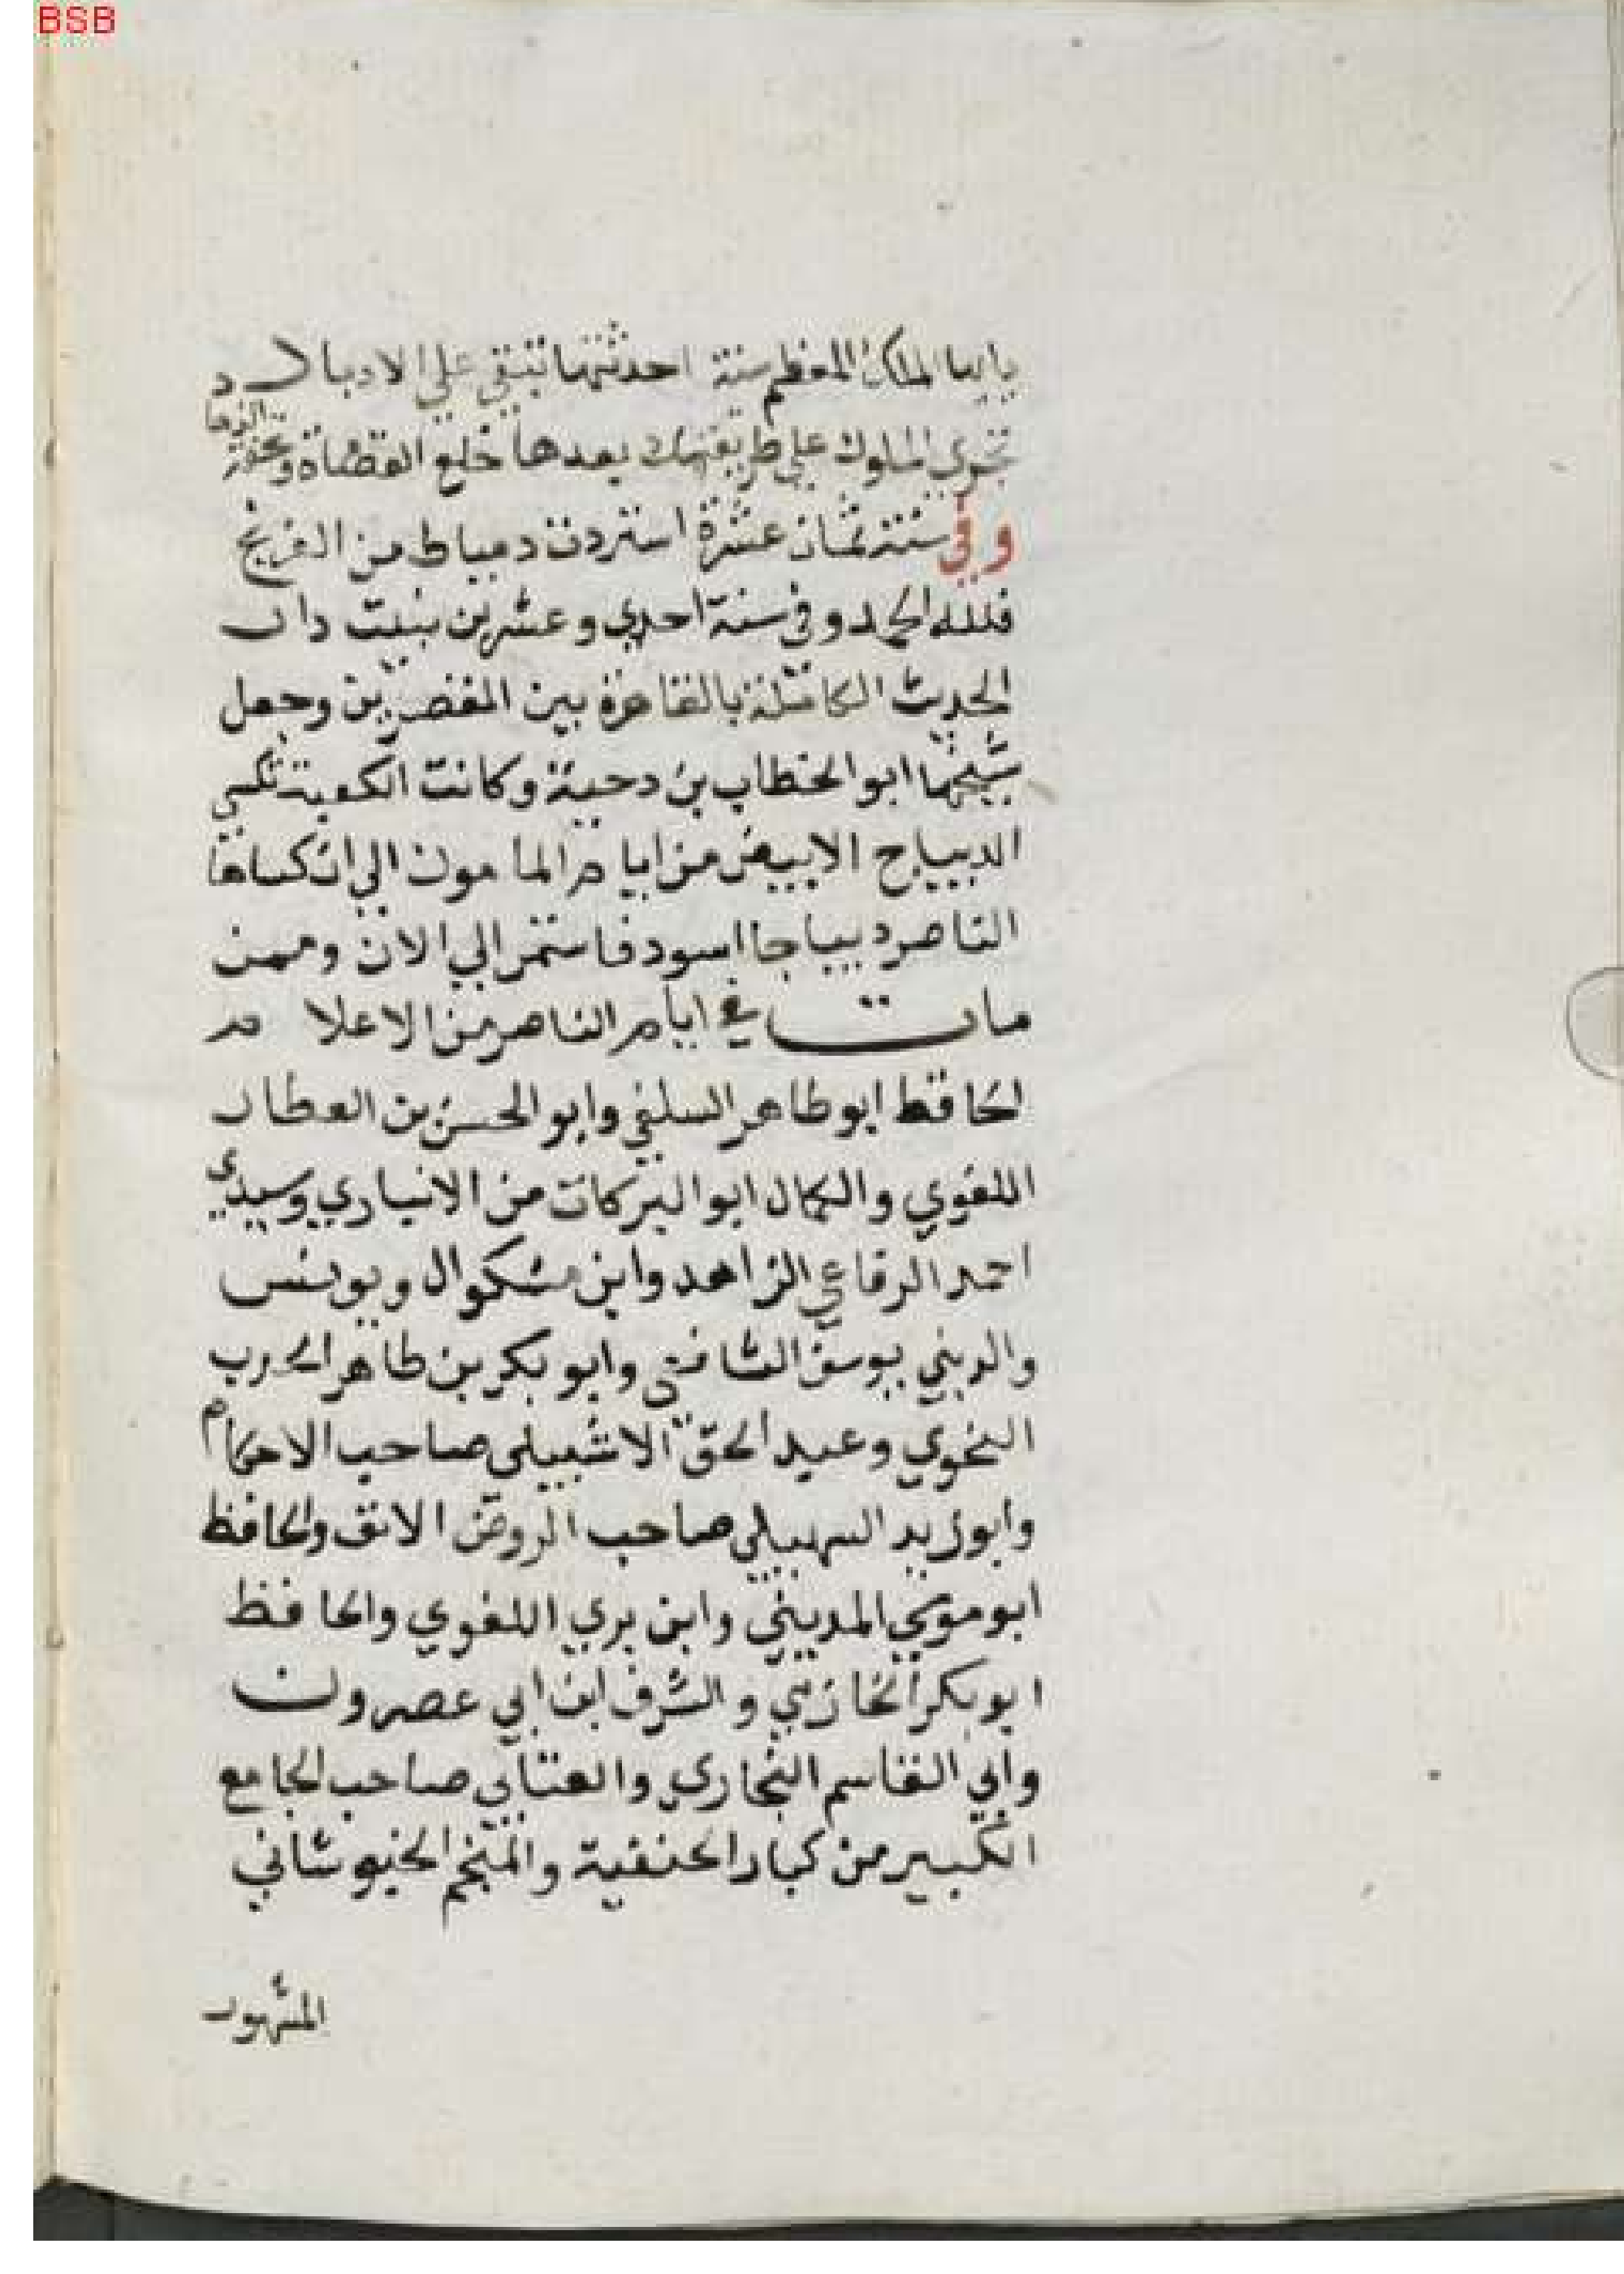 BSB
يا ايها الملك المعظم سنة احدثتها تبقي علي الاباد
تجري الملوك علي طريقتك بعدها خلع القضاة وتحفة الزها
وفي سنة ثمان عشرة استردت دمياط من الفرنج
فلله الحمد وفي سنة احدي وعشرين بنيت دار
الحديث الكاملة بالقاهرة بين القصرين وجعل
شيخها ابو الخطاب بن دحية وكانت الكعبة تكسي
الديباج الابيض من ايام المامون الي ان كساها
الناصر ديباجا اسود فاستمر الي الان وممن
مات في ايام الناصر من الاعلام
الحافظ ابو طاهر السلفي وابو الحسن بن العطار
اللغوي والكمال ابو البركات من الانباري وسيدي
احمد الرفاعي الزاهد وابن مشكوال ويونس
والد بني يوسف الشافعي وابو بكر بن طاهر الحدب
النحوي وعبد الحق الاشبيلي صاحب الاحكام
وابو زيد السهيلي صاحب الروض الانف والحافظ
ابو موسي المديني وابن بري اللغوي والحافظ
ابو بكر الحازمي والشرف ابن ابي عصرون
وابي القاسم البخاري والعتابي صاحب الجامع
الكبير من كبار الحنفية والنجم الخبوشاني
المشهور